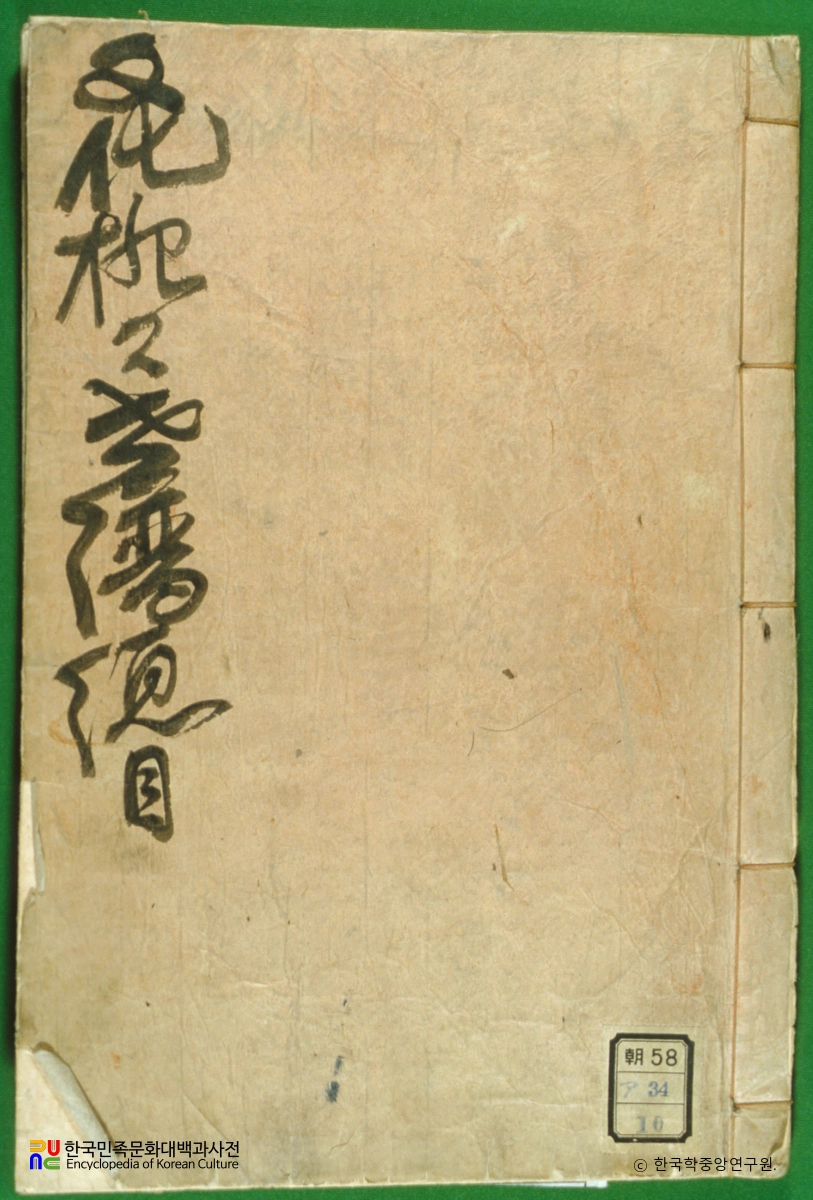 文化柳氏世譜總目
朝 58
ア 34
10
한국민족문화대백과사전
Encyclopedia of Korean Culture
ⓒ 한국학중앙연구원.